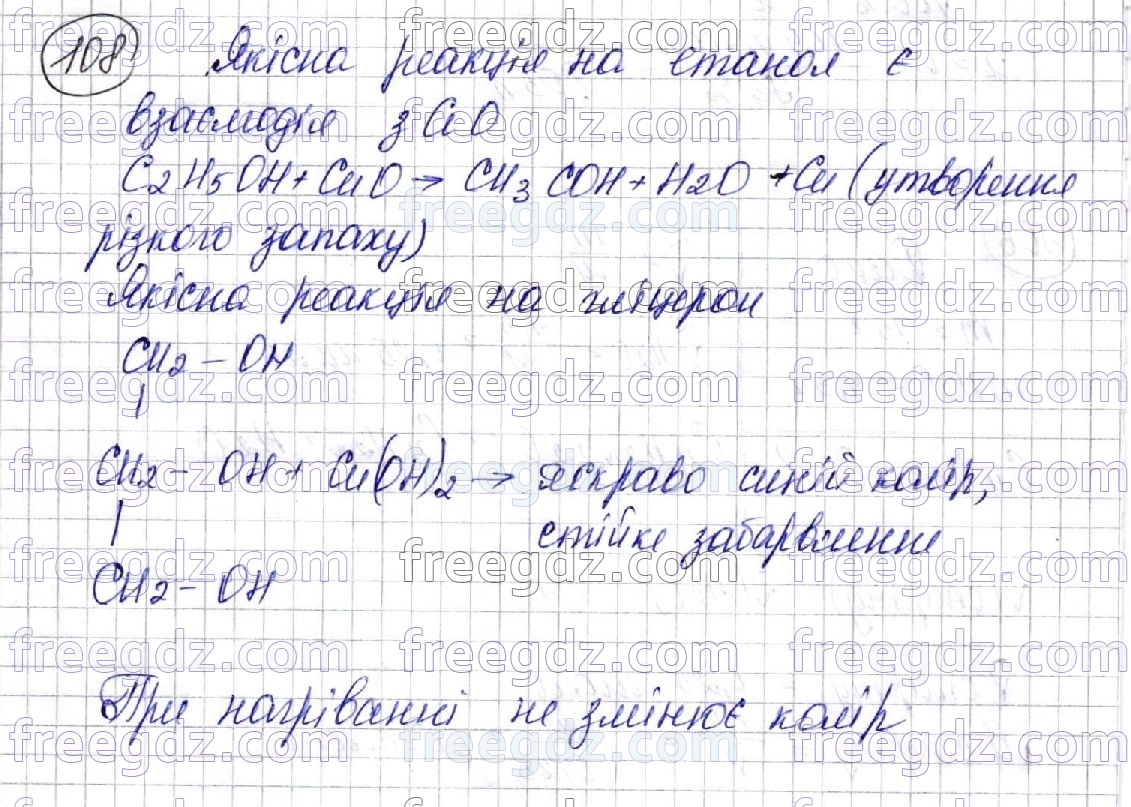 108 Якісна реакція на етанол є
взаємодія з CuO
C2H5OH + CuO → CH3COH + H2O + Cu (утворення
різкого запаху)
Якісна реакція на гліцерол
CH2 – OH
|
CH2 – OH + Cu(OH)2 → яскраво синій колір,
стійке забарвлення
|
CH2 – OH
При нагріванні не змінює колір
freegdz.com